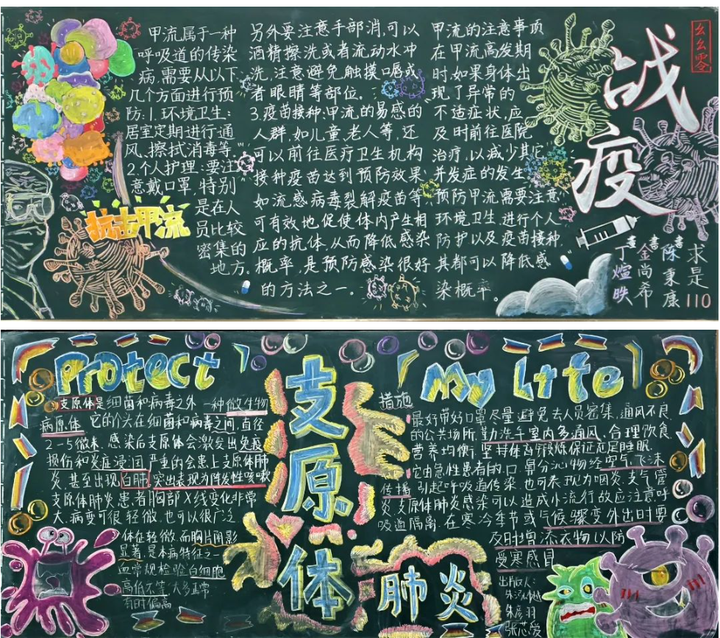 甲流属于一种
呼吸道的传染
病,需要从以下
几个方面进行预
防:1.环境卫生:
居室定期进行通
风、擦拭消毒等。
2.个人护理:要注
意戴口罩,特别
是在人
员比较
密集的
地方,
另外要注意手部消,可以
酒精擦洗或者流动水冲
洗,注意避免触摸口唇或
者眼睛等部位。
3.疫苗接种:甲流的易感的
人群,如儿童、老人等,还
可以前往医疗卫生机构
接种疫苗达到预防效果
如流感病毒裂解疫苗等
可有效地促使体内产生相
应的抗体,从而降低感染
概率,是预防感染很好
的方法之一。
甲流的注意事项
在甲流高发期
时,如果身体出
现了异常的
不适症状,应
及时前往医院
治疗,以减少其它
并发症的发生
预防甲流需要注意
环境卫生、进行个人
防护以及疫苗接种
其都可以降低感
染概率。
抗击甲流
战疫
么么零
求是110
陈秉康
金尚希
丁煊昳
Protect
My Life
支原体
肺炎
支原体是细菌和病毒之外一种微生物
病原体,它的个头在细菌和病毒之间,直径
与微米,感染后支原体会激发出免疫
损伤和炎症浸润,严重的会患上支原体肺
炎,甚至出现白肺,突出表现为阵发性咳嗽
支原体肺炎患者胸部X线变化非常
大,病变可很轻微,也可以很广泛
体征轻微而胸片阴影
显著,是本病特征之一
血常规检验白细胞
高低不等,大多正常
有时偏高
措施
最好带好口罩尽量避免去人员密集,通风不良
的公共场所,勤洗手室内多通风,合理饮食
营养均衡,坚持体育锻炼保证充足睡眠
引起呼吸道传染,也可表现为咽炎,支气管
炎,支原体肺炎感染可以造成小流行故应注意呼
吸道隔离,在寒冷季节或气候骤变外出时要
及时增添衣物以防
受寒感冒
出版人: